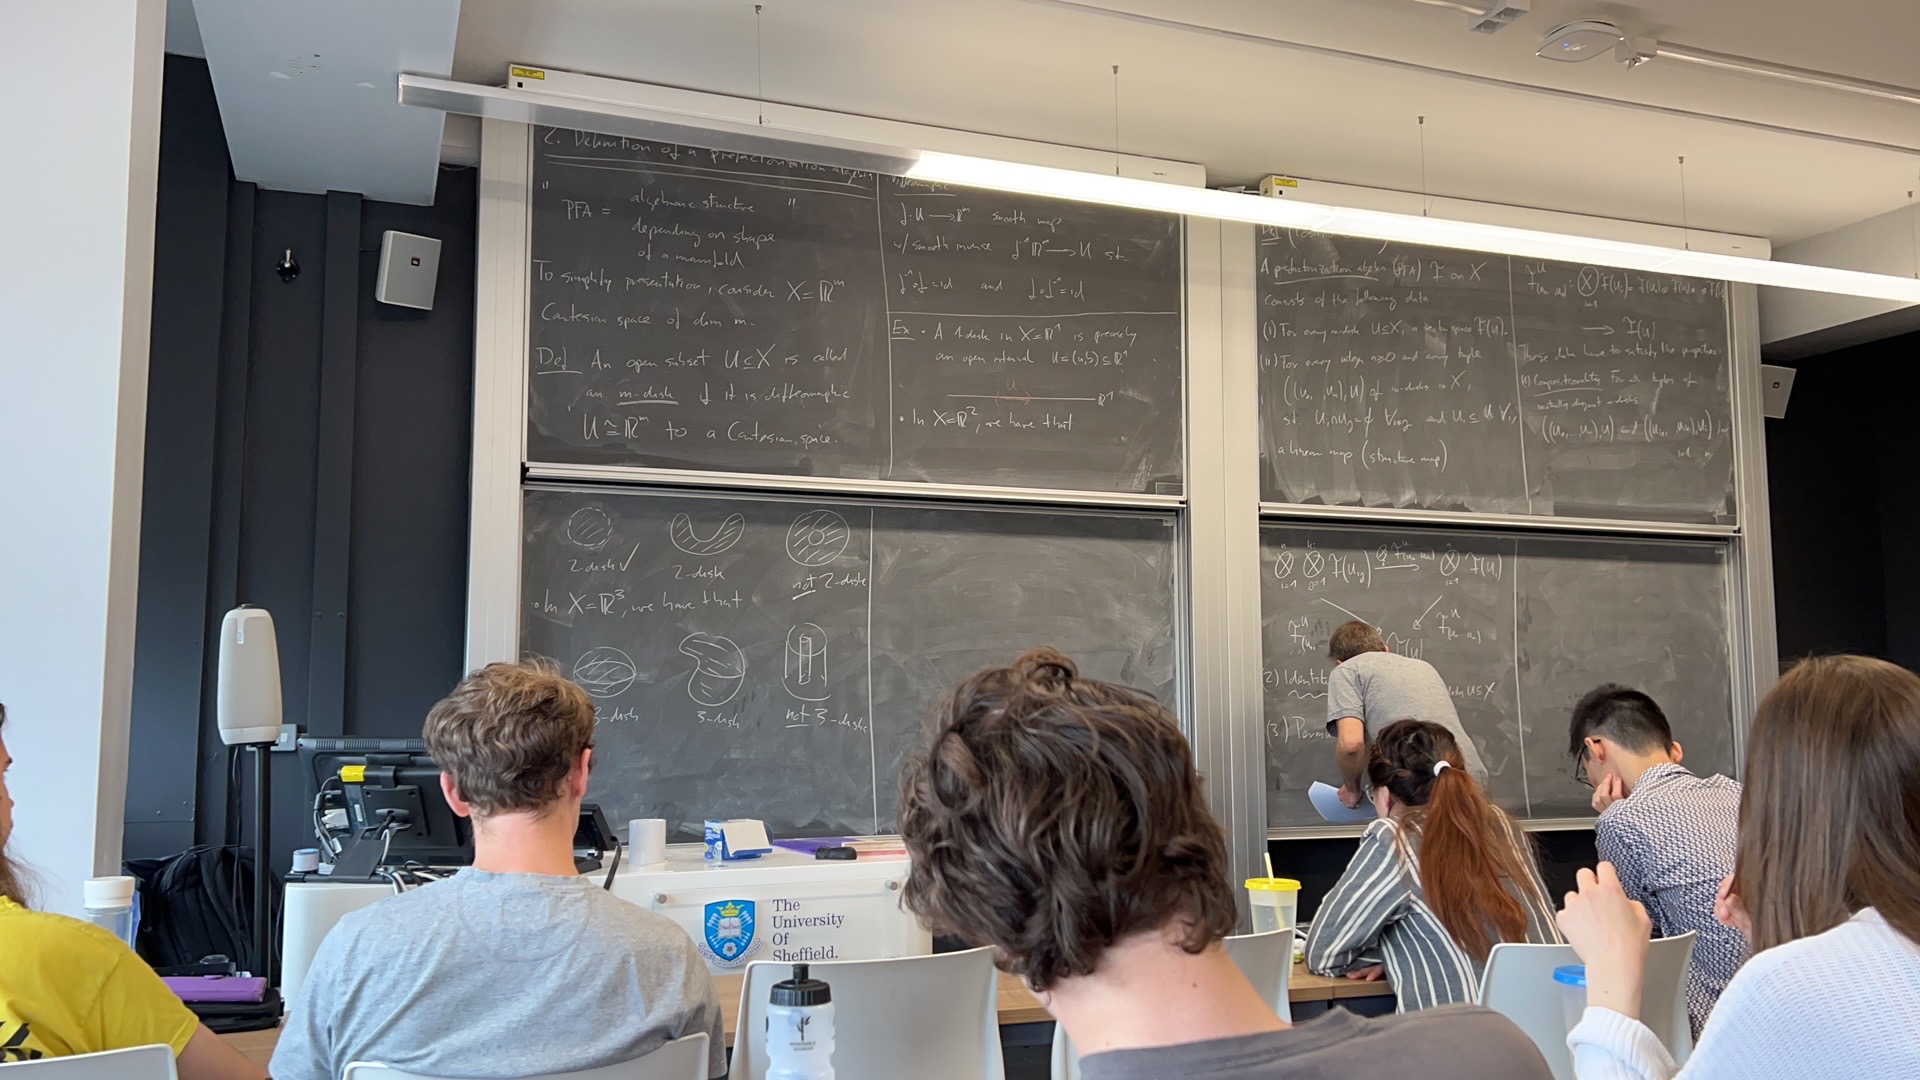 2. Definition of a prefactorization algebra
" PFA = algebraic structure "
depending on shape
of a manifold
To simplify presentation, consider X = ℝᵐ
Cartesian space of dim m.
Def An open subset U ⊆ X is called
an m-disk if it is diffeomorphic
U ≅ ℝᵐ to a Cartesian space.
diffeomorphic
f: U → ℝᵐ smooth map
w/ smooth inverse f⁻¹: ℝᵐ → U st.
f⁻¹∘f = id and f∘f⁻¹ = id
Ex • A 1-disk in X=ℝ¹ is precisely
an open interval U=(a,b) ⊆ ℝ¹
U
ℝ¹
• In X=ℝ², we have that
2-disk ✓
2-disk
not 2-disk
• In X=ℝ³, we have that
3-disk
3-disk
not 3-disk
Def
A prefactorization algebra (PFA) F on X
consists of the following data
(i) For every m-disk U⊆X, a vector space F(U).
(ii) For every integer n≥0 and every tuple
((U₁, … Uₙ), U) of m-disks in X,
st. Uᵢ∩Uⱼ=∅ ∀i≠j and Uᵢ ⊆ U ∀i,
a linear map (structure map)
→ F(U)
These data have to satisfy the properties
(1) Compositionality For all tuples of
mutually disjoint m-disks
F(U)
(2)
(3)
The
University
Of
Sheffield.